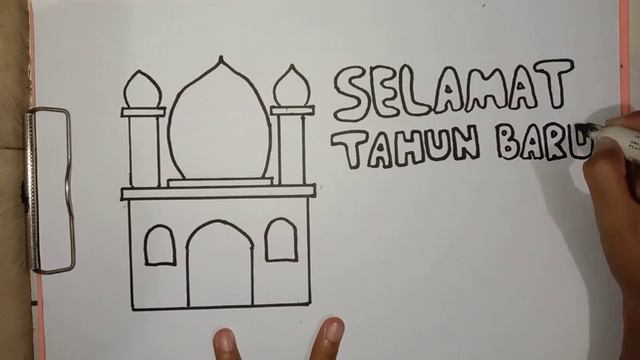 SELAMAT
TAHUN BARU